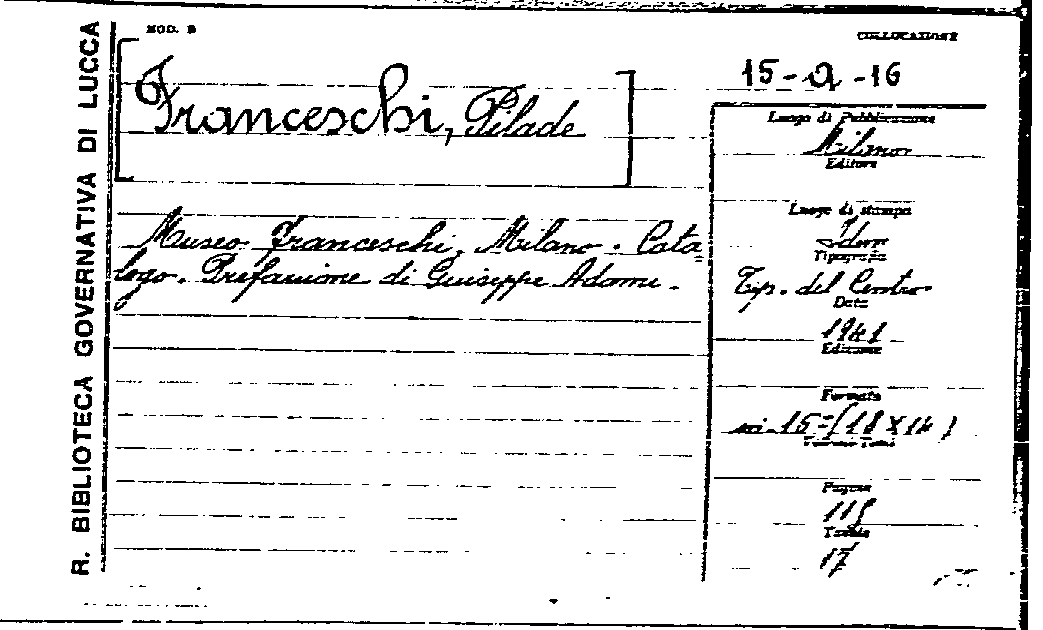 R. BIBLIOTECA GOVERNATIVA DI LUCCA
MOD. B
COLLOCAZIONE
15-a-16
Franceschi, Pilade
Museo Franceschi, Milano. Cata=
logo. Prefazione di Giuseppe Adami.
Luogo di Pubblicazione
Milano
Editore
Luogo di stampa
Idem
Tipografia
Tip. del Centro
Data
1941
Edizione
Formato
in-15=(18X14)
Pagine
Tavole
17